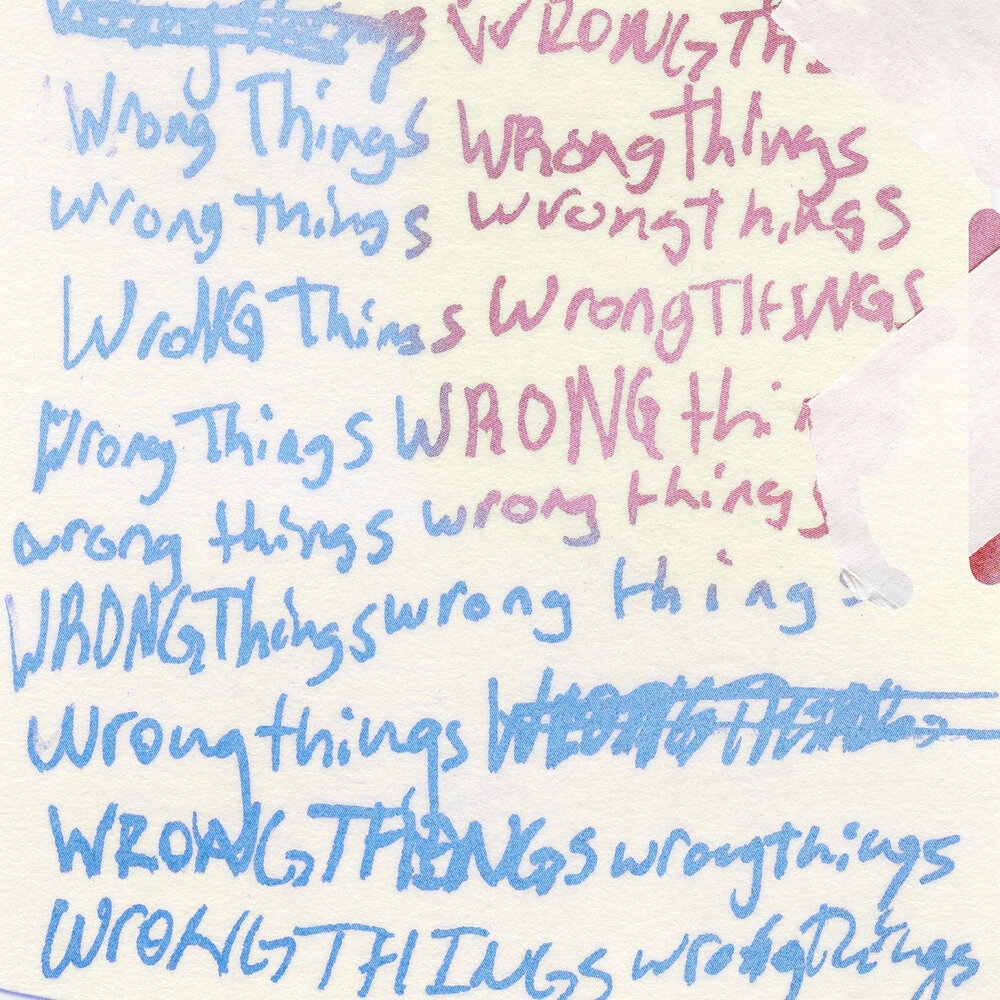 WRONGThi
Wrong Things WRongthings
wrong things wrongthings
WroNG Things WrongTHINGS
Wrong Things WRONG thin
wrong things wrong things
WRONGThings wrong things
Wrongthings
WRONGTHINGS wrongthings
WRONGTHINGS wrongthings